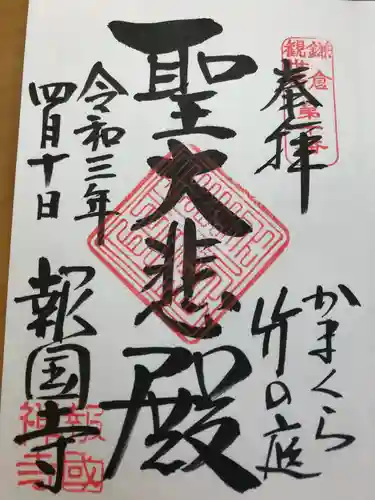 奉拝
かまくら
竹の庭
聖大悲殿
令和三年
四月十日
報国寺
鎌倉
報国
禅寺